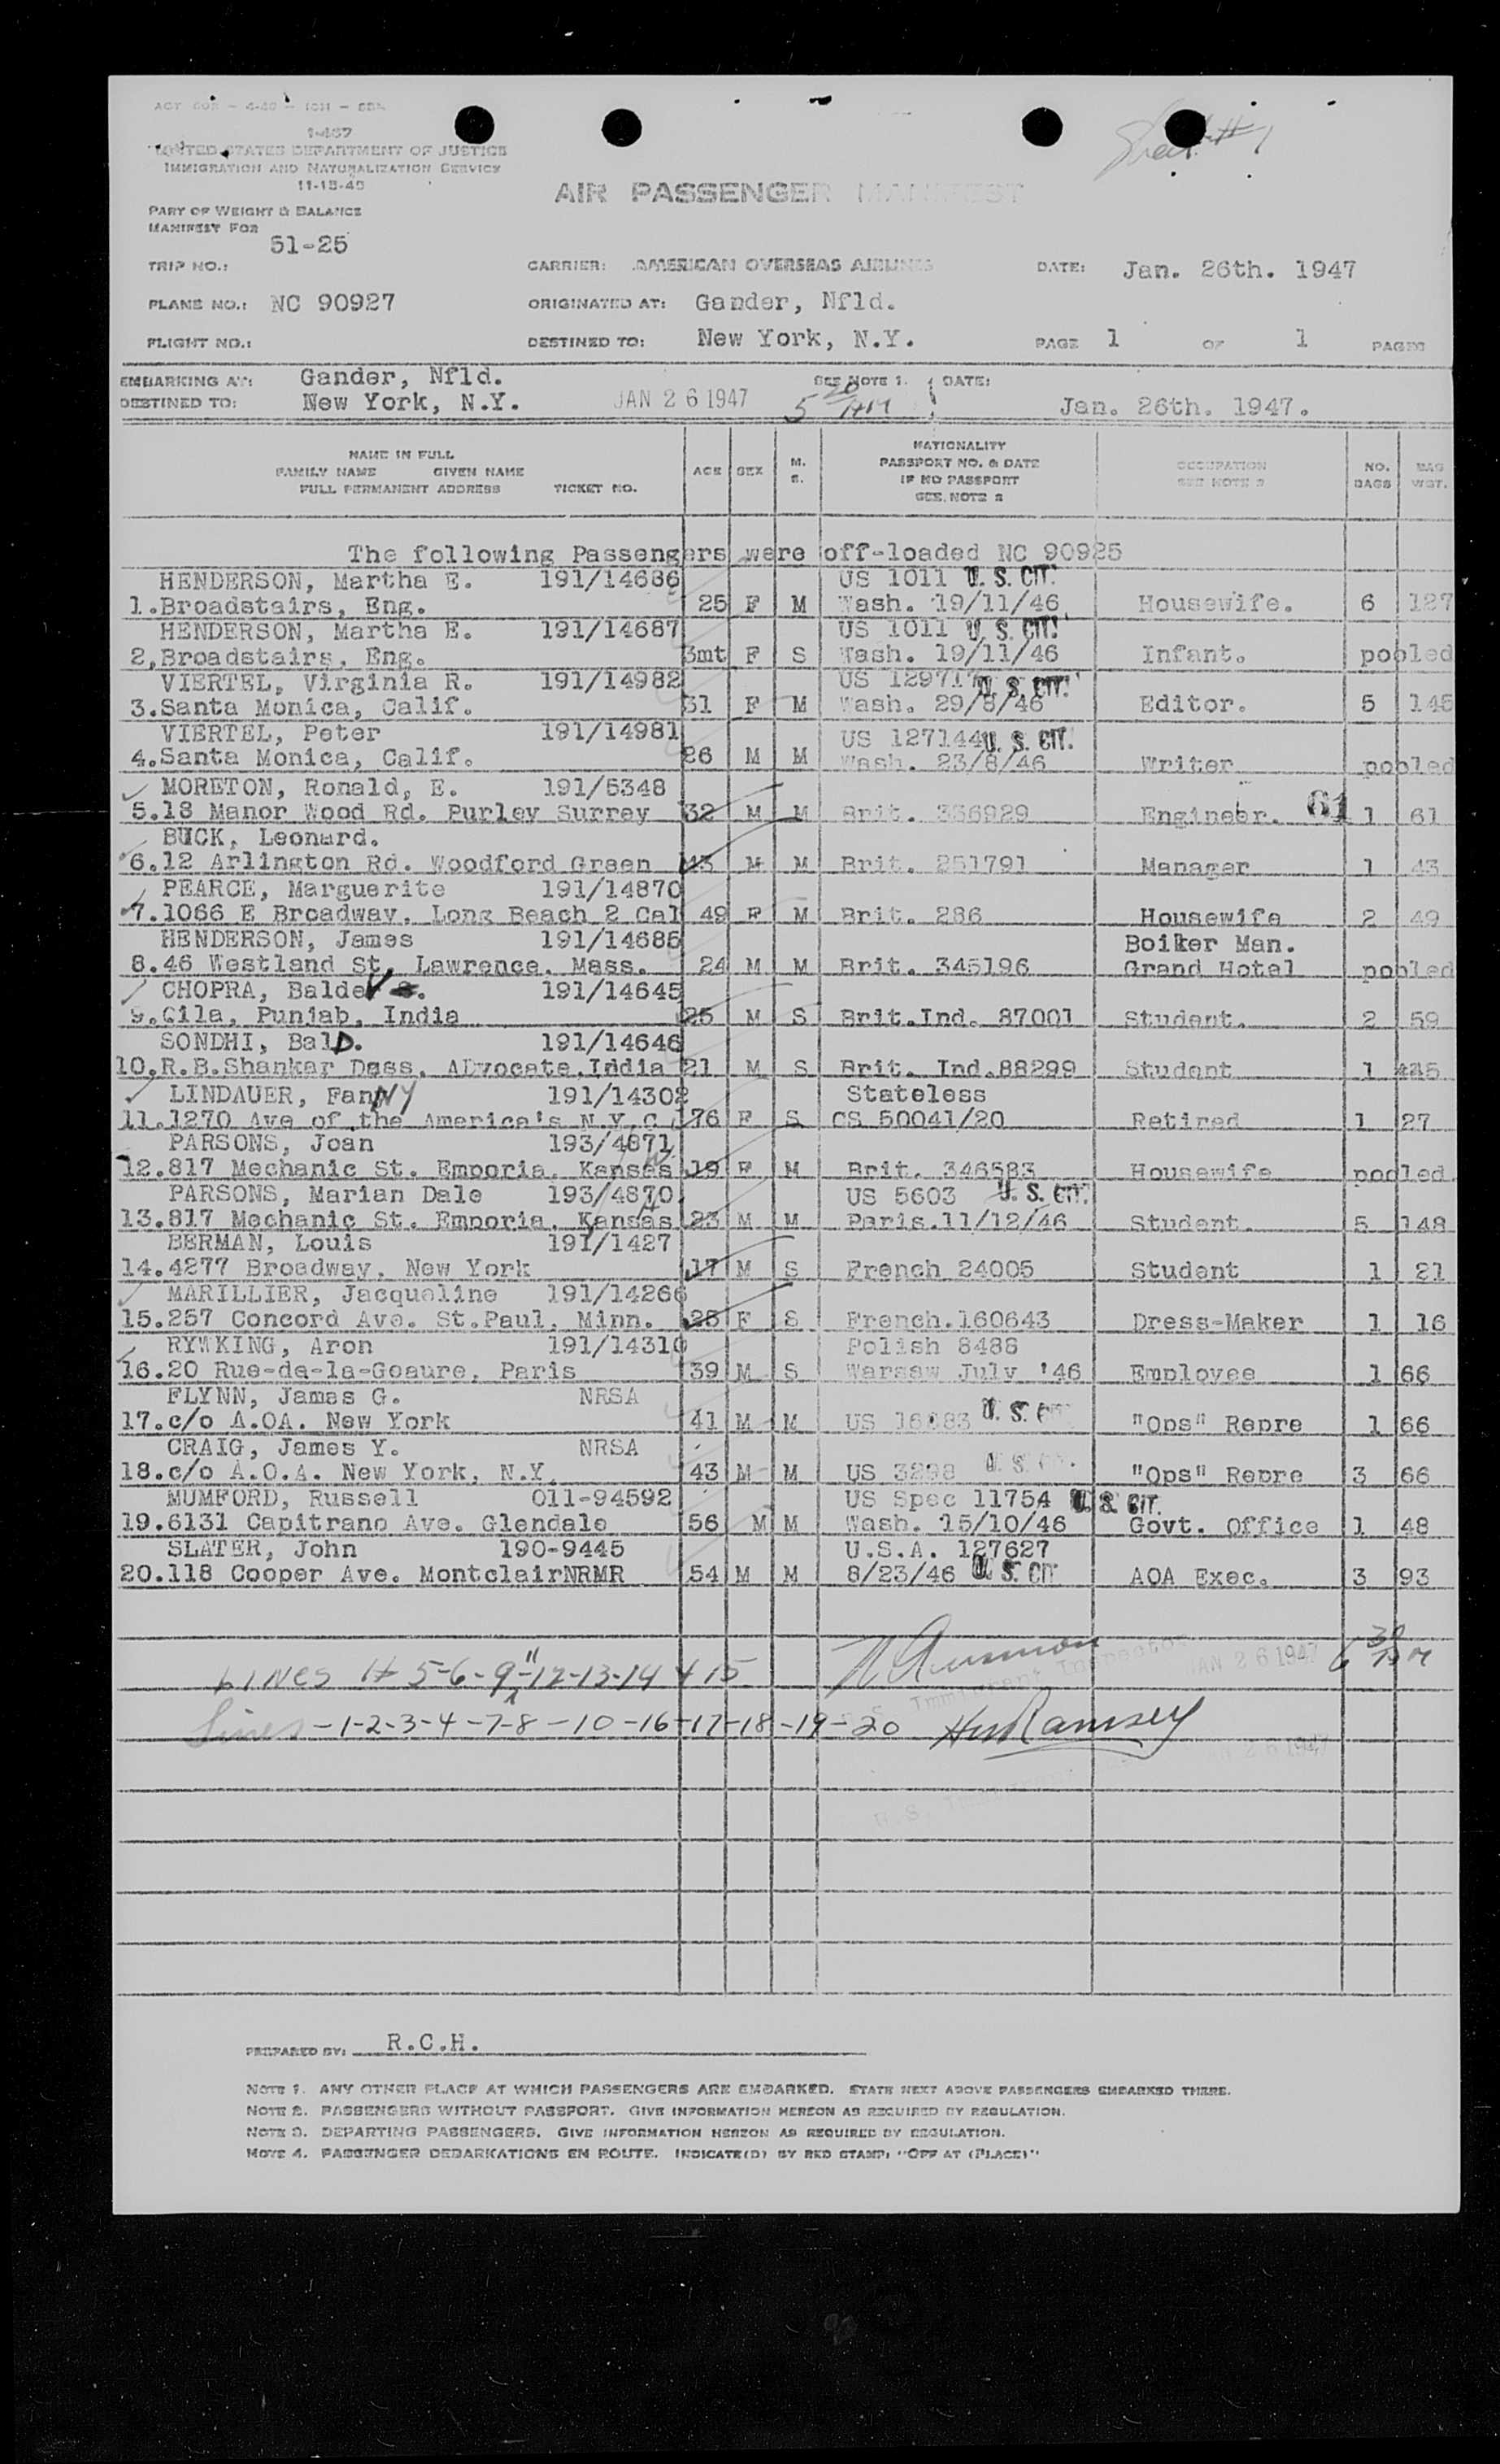 1-467
UNITED STATES DEPARTMENT OF JUSTICE
IMMIGRATION AND NATURALIZATION SERVICE
11-15-45
Sheet #1
AIR PASSENGER MANIFEST
PART OF WEIGHT & BALANCE
MANIFEST FOR
51-25
TRIP NO.: CARRIER: AMERICAN OVERSEAS AIRLINES DATE: Jan. 26th. 1947
PLANE NO.: NC 90927 ORIGINATED AT: Gander, Nfld.
FLIGHT NO.: DESTINED TO: New York, N.Y. PAGE 1 OF 1 PAGES
EMBARKING AT: Gander, Nfld. SEE NOTE 1. DATE:
DESTINED TO: New York, N.Y. JAN 26 1947 5 20 AM Jan. 26th. 1947.
NAME IN FULL
FAMILY NAME GIVEN NAME
FULL PERMANENT ADDRESS TICKET NO. AGE SEX M. S. NATIONALITY PASSPORT NO. & DATE IF NO PASSPORT SEE NOTE 2 OCCUPATION SEE NOTE 3 NO. BAGS BAG WGT.
The following Passengers were off-loaded NC 90925
HENDERSON, Martha E. 191/14686 US 1011 U. S. CIT.
1.Broadstairs, Eng. 25 F M Wash. 19/11/46 Housewife. 6 127
HENDERSON, Martha E. 191/14687 US 1011 U. S. CIT.
2,Broadstairs, Eng. 3mt F S Wash. 19/11/46 Infant. pooled
VIERTEL, Virginia R. 191/14982 US 12971 U. S. CIT.
3.Santa Monica, Calif. 31 F M Wash. 29/8/46 Editor. 5 145
VIERTEL, Peter 191/14981 US 127144 U. S. CIT.
4.Santa Monica, Calif. 26 M M Wash. 23/8/46 Writer pooled
MORETON, Ronald, E. 191/5348
5.18 Manor Wood Rd. Purley Surrey 32 M M Brit. 336929 Engineer. 61 1 61
BUCK, Leonard.
6.12 Arlington Rd. Woodford Green 43 M M Brit. 251791 Manager 1 43
PEARCE, Marguerite 191/14870
7.1066 E Broadway, Long Beach 2 Cal 49 F M Brit. 286 Housewife 2 49
HENDERSON, James 191/14685 Boiler Man.
8.46 Westland St, Lawrence, Mass. 24 M M Brit. 345196 Grand Hotel pooled
CHOPRA, Baldev 191/14645
9.Gila, Punjab, India 25 M S Brit.Ind. 87001 Student. 2 59
SONDHI, Bal D. 191/14646
10.R.B.Shankar Dass, ADvocate.India 21 M S Brit. Ind.88299 Student 1 45
LINDAUER, FanNY 191/14302 Stateless
11.1270 Ave of the America's N.Y.C. 76 F S CS 50041/20 Retired 1 27
PARSONS, Joan 193/4871
12.817 Mechanic St. Emporia, Kansas 19 F M Brit. 346583 Housewife pooled.
PARSONS, Marian Dale 193/4870 US 5603 U. S. CIT.
13.817 Mechanic St. Emporia, Kansas 23 M M Paris.11/12/46 Student. 5 148
BERMAN, Louis 191/1427
14.4277 Broadway, New York 17 M S French 24005 Student 1 21
MARILLIER, Jacqueline 191/14266
15.257 Concord Ave. St.Paul, Minn. 25 F S French.160643 Dress-Maker 1 16
RYWKING, Aron 191/14310 Polish 8488
16.20 Rue-de-la-Goaure, Paris 39 M S Warsaw July '46 Employee 1 66
FLYNN, James G. NRSA
17.c/o A.OA. New York 41 M M US 16883 U. S. CIT. "Ops" Repre 1 66
CRAIG, James Y. NRSA
18.c/o A.O.A. New York, N.Y. 43 M M US 3298 U. S. CIT. "Ops" Repre 3 66
MUMFORD, Russell 011-94592 US Spec 11754 U. S. CIT.
19.6131 Capitrano Ave. Glendale 56 M M Wash. 15/10/46 Govt. Office 1 48
SLATER, John 190-9445 U.S.A. 127627
20.118 Cooper Ave. MontclairNRMR 54 M M 8/23/46 U. S. CIT AOA Exec. 3 93
LINES # 5-6-9-11-12-13-14 + 15 Immigrant Inspector JAN 26 1947 6 30
Lines -1-2-3-4-7-8-10-16-17-18-19-20 Ramsey
26 1947
PREPARED BY: R.C.H.
NOTE 1. ANY OTHER PLACE AT WHICH PASSENGERS ARE EMBARKED. STATE NEXT ABOVE PASSENGERS EMBARKED THERE.
NOTE 2. PASSENGERS WITHOUT PASSPORT. GIVE INFORMATION HEREON AS REQUIRED BY REGULATION.
NOTE 3. DEPARTING PASSENGERS. GIVE INFORMATION HEREON AS REQUIRED BY REGULATION.
NOTE 4. PASSENGER DEBARKATIONS EN ROUTE. INDICATE(D) BY RED STAMP: "OFF AT (PLACE)"